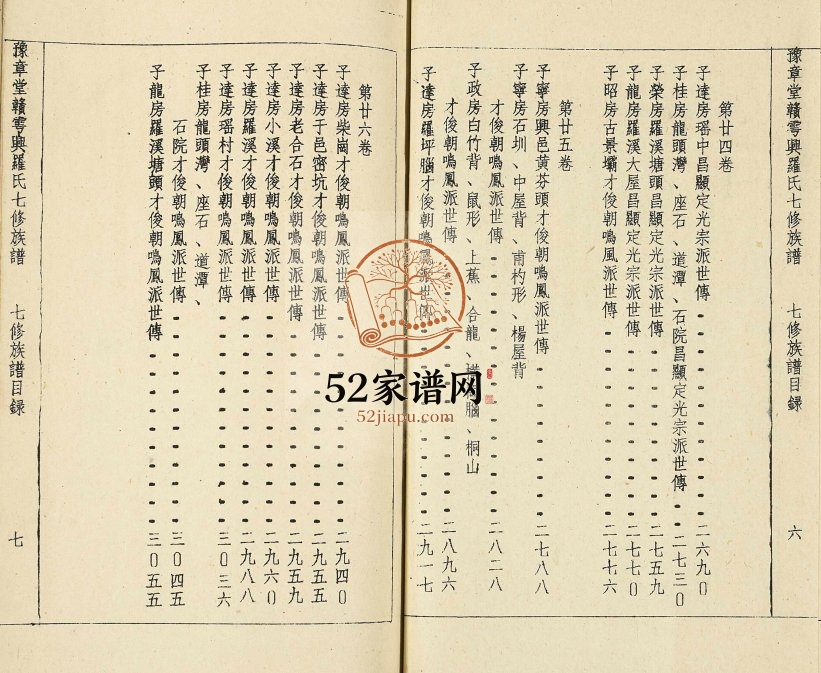 豫章堂贛雩興羅氏七修族譜 七修族譜目録 六
第廿四卷
子達房瑶中昌顯定光宗派世傳 二六九0
子桂房龍頭灣、座石、道潭、石院昌顯定光宗派世傳 二七三0
子榮房羅溪塘頭昌顯定光宗派世傳 二七五九
子龍房羅溪大屋昌顯定光宗派世傳 二七七0
子昭房古景壩才俊朝鳴風派世傳 二七七六
第廿五卷
子寧房興邑黃芬頭才俊朝鳴鳳派世傳 二七八八
子寧房石圳、中屋背、甫杓形、楊屋背
才俊朝鳴鳳派世傳 二八二八
子政房白竹背、鼠形、上蕉、合龍、腦、桐山
才俊朝鳴鳳派世傳 二八九六
子達房羅坪腦才俊朝鳴鳳派世傳 二九一七
第廿六卷
子達房柴崗才俊朝鳴鳳派世傳 二九四0
子達房于邑密坑才俊朝鳴鳳派世傳 二九五五
子達房老合石才俊朝鳴鳳派世傳 二九五九
子達房小溪才俊朝鳴鳳派世傳 二九六0
子達房羅溪才俊朝鳴鳳派世傳 二九八八
子達房瑶村才俊朝鳴鳳派世傳 三0三六
子桂房龍頭灣、座石、道潭、
石院才俊朝鳴鳳派世傳 三0四五
子龍房羅溪塘頭才俊朝鳴鳳派世傳 三0五五
豫章堂贛雩興羅氏七修族譜 七修族譜目録 七
52家谱网
52jiapu.com